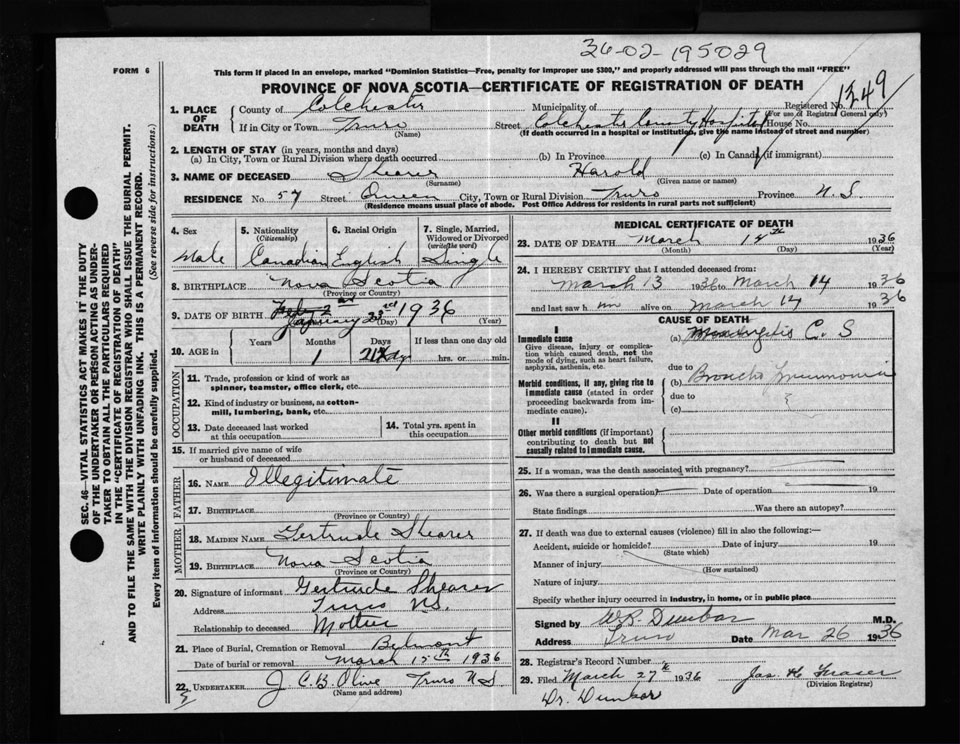 36-02-195029
FORM 6
This form if placed in an envelope, marked "Dominion Statistics—Free, penalty for improper use $300," and properly addressed will pass through the mail "FREE"
PROVINCE OF NOVA SCOTIA—CERTIFICATE OF REGISTRATION OF DEATH
1. PLACE OF DEATH
County of Colchester Municipality of Registered No. 1349
(For use of Registrar General only)
If in City or Town Truro (Name) Street Colchester County Hospital House No.
(If death occurred in a hospital or institution, give the name instead of street and number)
2. LENGTH OF STAY (in years, months and days)
(a) In City, Town or Rural Division where death occurred (b) In Province (c) In Canada (if immigrant)
3. NAME OF DECEASED Shearer (Surname) Harold (Given name or names)
RESIDENCE No. 57 Street Queen City, Town or Rural Division Truro Province N.S
(Residence means usual place of abode. Post Office Address for residents in rural parts not sufficient)
4. Sex Male
5. Nationality (Citizenship) Canadian
6. Racial Origin English
7. Single, Married, Widowed or Divorced (write the word) Single
8. BIRTHPLACE Nova Scotia
(Province or Country)
9. DATE OF BIRTH January 23rd 1936
(Day) (Year)
10. AGE in Years Months 1 Days If less than one day old hrs. or min.
OCCUPATION
11. Trade, profession or kind of work as spinner, teamster, office clerk, etc.
12. Kind of industry or business, as cotton-mill, lumbering, bank, etc.
13. Date deceased last worked at this occupation
14. Total yrs. spent in this occupation
15. If married give name of wife or husband of deceased
FATHER
16. NAME Illegitimate
17. BIRTHPLACE
(Province or Country)
MOTHER
18. MAIDEN NAME Gertrude Shearer
19. BIRTHPLACE Nova Scotia
(Province or Country)
20. Signature of informant Gertrude Shearer
Address Truro NS.
Relationship to deceased Mother
21. Place of Burial, Cremation or Removal Belmont
Date of burial or removal March 15th 1936
22. UNDERTAKER J C.B. Olive Truro NS
(Name and address)
MEDICAL CERTIFICATE OF DEATH
23. DATE OF DEATH March 14th 1936
(Month) (Day) (Year)
24. I HEREBY CERTIFY that I attended deceased from:
March 13 1936 to March 14 1936
and last saw h im alive on March 14 1936
CAUSE OF DEATH
I
Immediate cause
Give disease, injury or complication which caused death, not the mode of dying, such as heart failure, asphyxia, asthenia, etc.
(a) Meningitis C. S
due to
Morbid conditions, if any, giving rise to immediate cause (stated in order proceeding backwards from immediate cause).
(b) Broncho Pneumonia
due to
(c)
II
Other morbid conditions (if important) contributing to death but not causally related to immediate cause.
25. If a woman, was the death associated with pregnancy?
26. Was there a surgical operation Date of operation 19
State findings Was there an autopsy?
27. If death was due to external causes (violence) fill in also the following:—
Accident, suicide or homicide? Date of injury 19
(State which)
Manner of injury
(How sustained)
Nature of injury
Specify whether injury occurred in industry, in home, or in public place
Signed by W.R. Dunbar M.D.
Address Truro Date Mar 26 1936
28. Registrar's Record Number
29. Filed March 27th 1936 Jas H Fraser
(Division Registrar)
Dr. Dunbar
SEC. 46—VITAL STATISTICS ACT MAKES IT THE DUTY
OF THE UNDERTAKER OR PERSON ACTING AS UNDERTAKER TO OBTAIN ALL THE PARTICULARS REQUIRED
IN THE "CERTIFICATE OF REGISTRATION OF DEATH"
AND TO FILE THE SAME WITH THE DIVISION REGISTRAR WHO SHALL ISSUE THE BURIAL PERMIT.
WRITE PLAINLY WITH UNFADING INK. THIS IS A PERMANENT RECORD.
Every item of information should be carefully supplied. (See reverse side for instructions.)